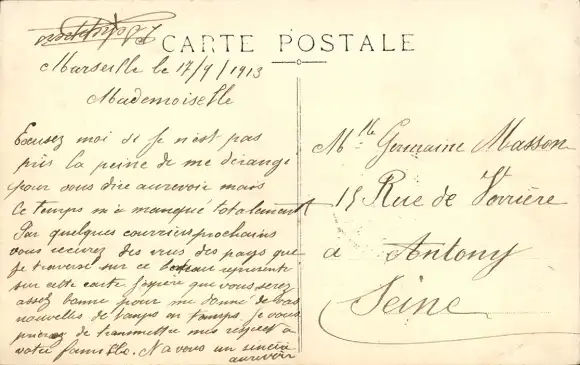 CARTE POSTALE
Marseille le 17/9/1913
Mademoiselle
Excusez moi si Je n'est pas
pris la peine de me dérange
pour vous dire aurevoir mais
le temps m'a manqué totalement
Par quelques courriers prochains
vous recevrez des vues des pays que
Je traverse sur ce bateau representé
sur cette carte J'espère que vous serez
assez bonne pour me donné de vos
nouvelles de temps en temps. Je vous
prierez de transmettre mes respect à
votre famille. N a vous un sincère
aurevoir
Mlle Germaine Masson
15 Rue de Verrière
a Antony
Seine